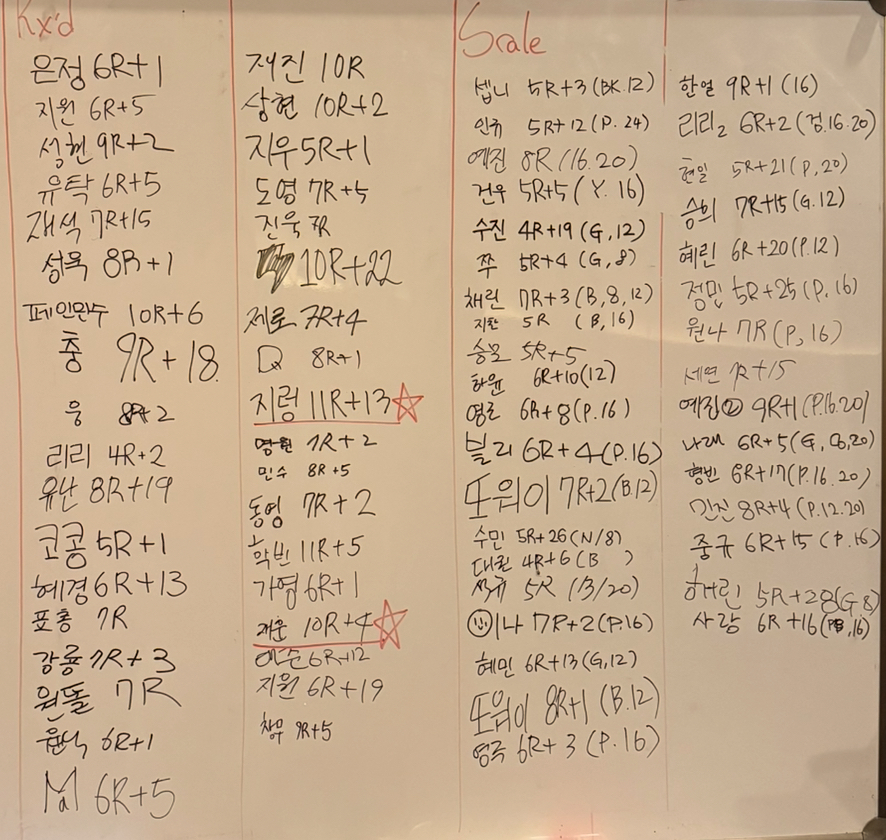 Rx'd
은정 6R+1
지원 6R+5
성현 9R+2
유탁 6R+5
재석 7R+15
성욱 8R+1
페인완수 10R+6
충 9R+18
웅 8R+2
리리 4R+2
유난 8R+19
코콩 5R+1
혜경 6R+13
포홍 7R
강룡 7R+3
원똘 7R
윤식 6R+1
6R+5
재진 10R
상현 10R+2
지우 5R+1
도영 7R+5
진욱 7R
10R+22
제로 7R+4
D 8R+1
지렁 11R+13
영원 7R+2
민수 8R+5
동영 7R+2
학빈 11R+5
가영 6R+1
재운 10R+4
예슨 6R+12
지원 6R+19
창무 9R+5
Scale
셉니 5R+3 (BK.12)
인규 5R+12 (P.24)
예진 8R (16.20)
건우 5R+5 (Y.16)
수진 4R+19 (G,12)
쭈 5R+4 (G,8)
채린 7R+3 (B,8,12)
지환 5R (B,16)
승모 5R+5
하윤 6R+10 (12)
영로 6R+8 (P.16)
블리 6R+4 (P.16)
또위이 7R+2 (B.12)
수민 5R+26 (N/8)
대권 4R+6 (B )
석규 5R (13/20)
이나 7R+2 (P.16)
혜민 6R+13 (G,12)
또위이 8R+1 (B.12)
영주 6R+3 (P.16)
한얼 9R+1 (16)
리리2 6R+2 (검.16.20)
현일 5R+21 (P,20)
승희 7R+15 (G.12)
혜린 6R+20 (P.12)
정민 5R+25 (P.16)
원나 7R (P,16)
세연 7R+15
예진② 9R+1 (P.16.20)
나래 6R+5 (G, 20)
형빈 6R+17 (P.16.20)
민진 8R+4 (P.12.20)
중규 6R+15 (P.16)
해린 5R+28 (G.8)
사랑 6R+16 ( ,16)